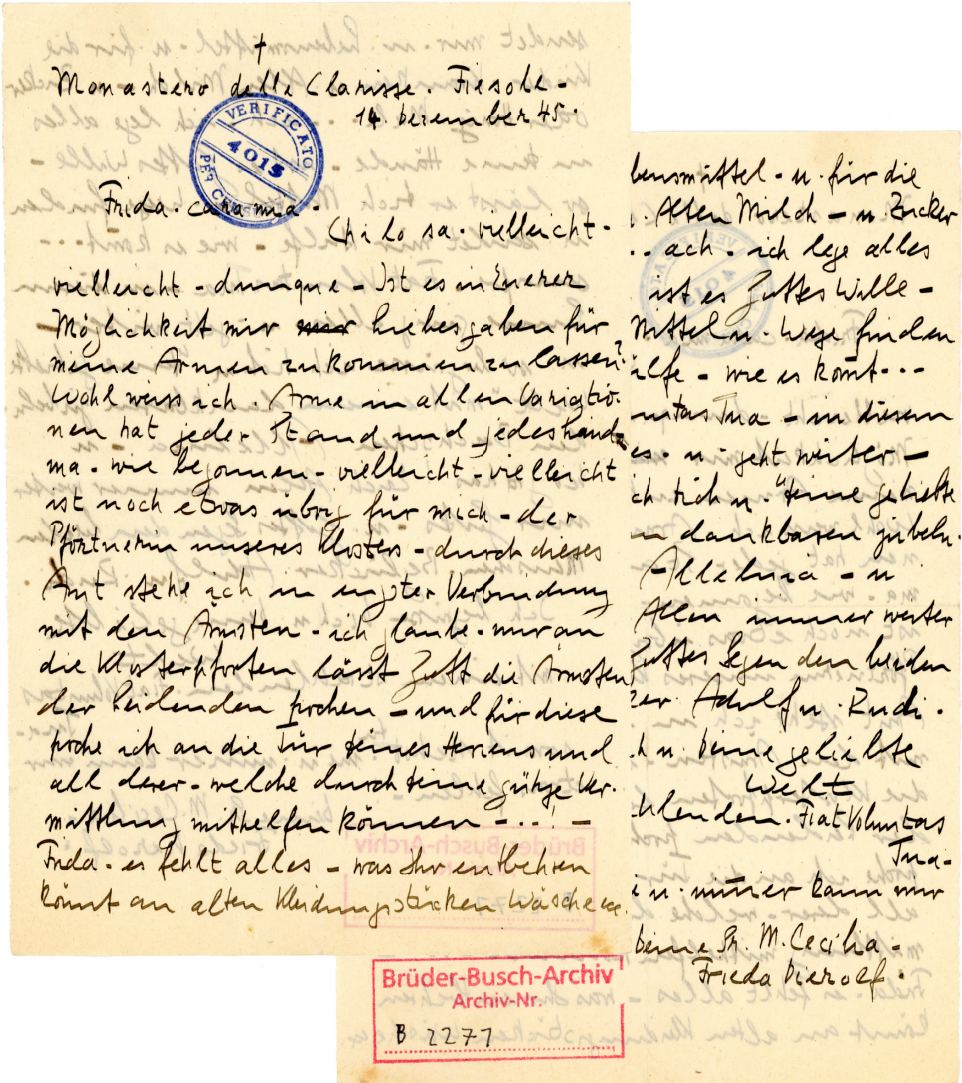 †
Monastero delle Clarisse. Fiesole-
14. Dezember 45.
VERIFICATO
4015
PER CENSURA
Frida. cara mia.
Chi lo sa. vielleicht-
vielleicht - dunque - Ist es in Euerer
Möglichkeit mir mir Liebesgaben für
meine Armen zukommen zu lassen?
Wohl weiss ich. Arme in allen Variatio-
nen hat jeder Stand und jedes Land-
ma. wie begonnen - vielleicht - vielleicht
ist noch etwas übrig für mich - der
Pförtnerin unseres Klosters - durch dieses
Amt stehe ich in engster Verbindung
mit den Ärmsten - ich glaube. nur an
die Klosterpforten lässt Gott die Ärmsten
der Leidenden pochen - und für diese
poche ich an die Tür Deines Herzens und
all derer - welche durch Deine gütige Ver-
mittlung mithelfen können - ...! -
Frida. es fehlt alles - was Ihr entbehren
könnt an alten Kleidungsstücken Wäsche
bensmittel - u. für die
. Alten Milch - u. Zucker
.. ach - ich lege alles
ist es Gottes Wille -
Mittel u. Wege finden
ilfe - wie es kömt...
untas Tua - in diesem
es. u. geht weiter -
ch Dich u. Deine geliebte
n dankbaren jubeln-
Alleluia - u
Allen immer weiter
Gottes Segen den beiden
er Adolf u. Rudi.
h u. Deine geliebte
Welt
hlenden. Fiat Voluntas
Tua-
i u. nimer kann nur
Deine Sr. M. Cecilia-
Frieda Pierolf.
Brüder-Busch-Archiv
Archiv-Nr.
B 2277